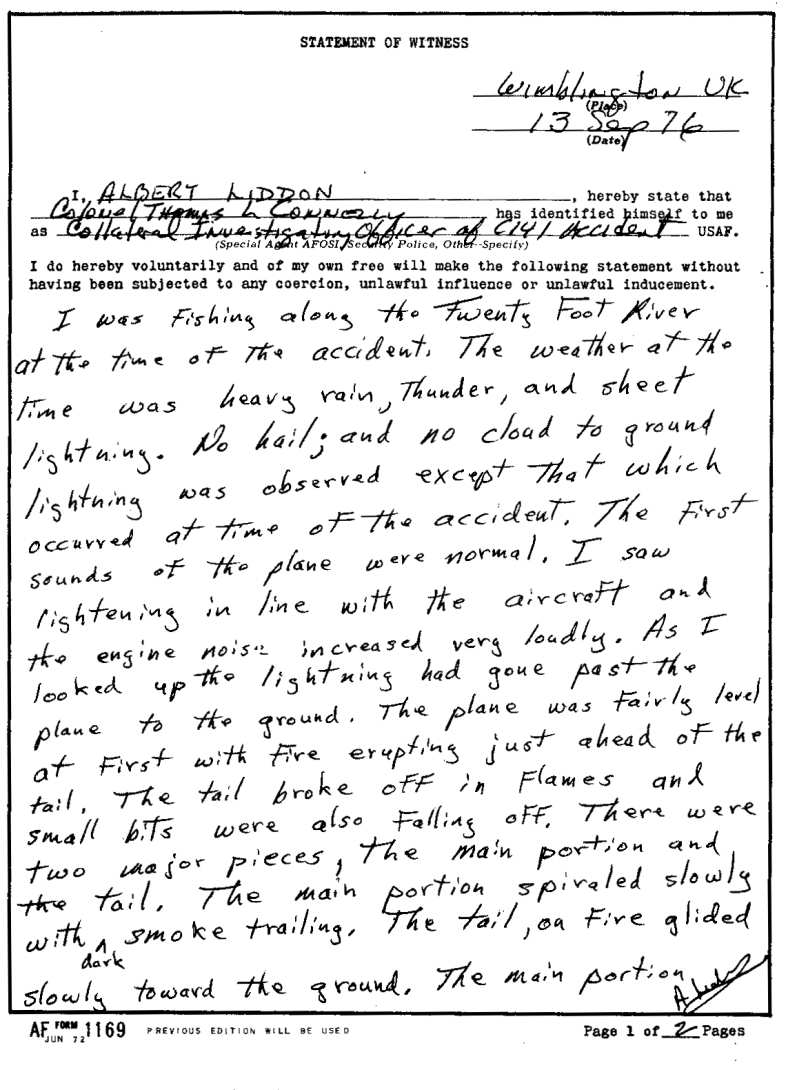 STATEMENT OF WITNESS
Wimblington UK
(Place)
13 Sep 76
(Date)
I, ALBERT LIDDON, hereby state that
Colonel THOMAS L CONNOLLY has identified himself to me
as Collateral Investigating Officer of C141 Accident USAF.
(Special Agent AFOSI, Security Police, Other--Specify)
I do hereby voluntarily and of my own free will make the following statement without
having been subjected to any coercion, unlawful influence or unlawful inducement.
I was Fishing along the Twenty Foot River
at the time of the accident. The weather at the
time was heavy rain, Thunder, and sheet
lightning. No hail; and no cloud to ground
lightning was observed except that which
occurred at time of the accident. The First
sounds of the plane were normal. I saw
lightening in line with the aircraft and
the engine noise increased very loudly. As I
looked up the lightning had gone past the
plane to the ground. The plane was Fairly level
at First with Fire erupting just ahead of the
tail. The tail broke off in Flames and
small bits were also Falling off. There were
two major pieces, the main portion and
the tail. The main portion spiraled slowly
with dark smoke trailing. The tail, on Fire glided
slowly toward the ground. The main portion
AF FORM JUN 72 1169 PREVIOUS EDITION WILL BE USED Page 1 of 2 Pages